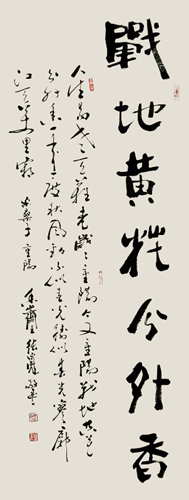 戰地黄花分外香
人生易老天難老歲歲重陽今又重陽戰地黄花
分外香一年一度秋風勁不似春光勝似春光寥廓
江天萬里霜 采桑子 重陽